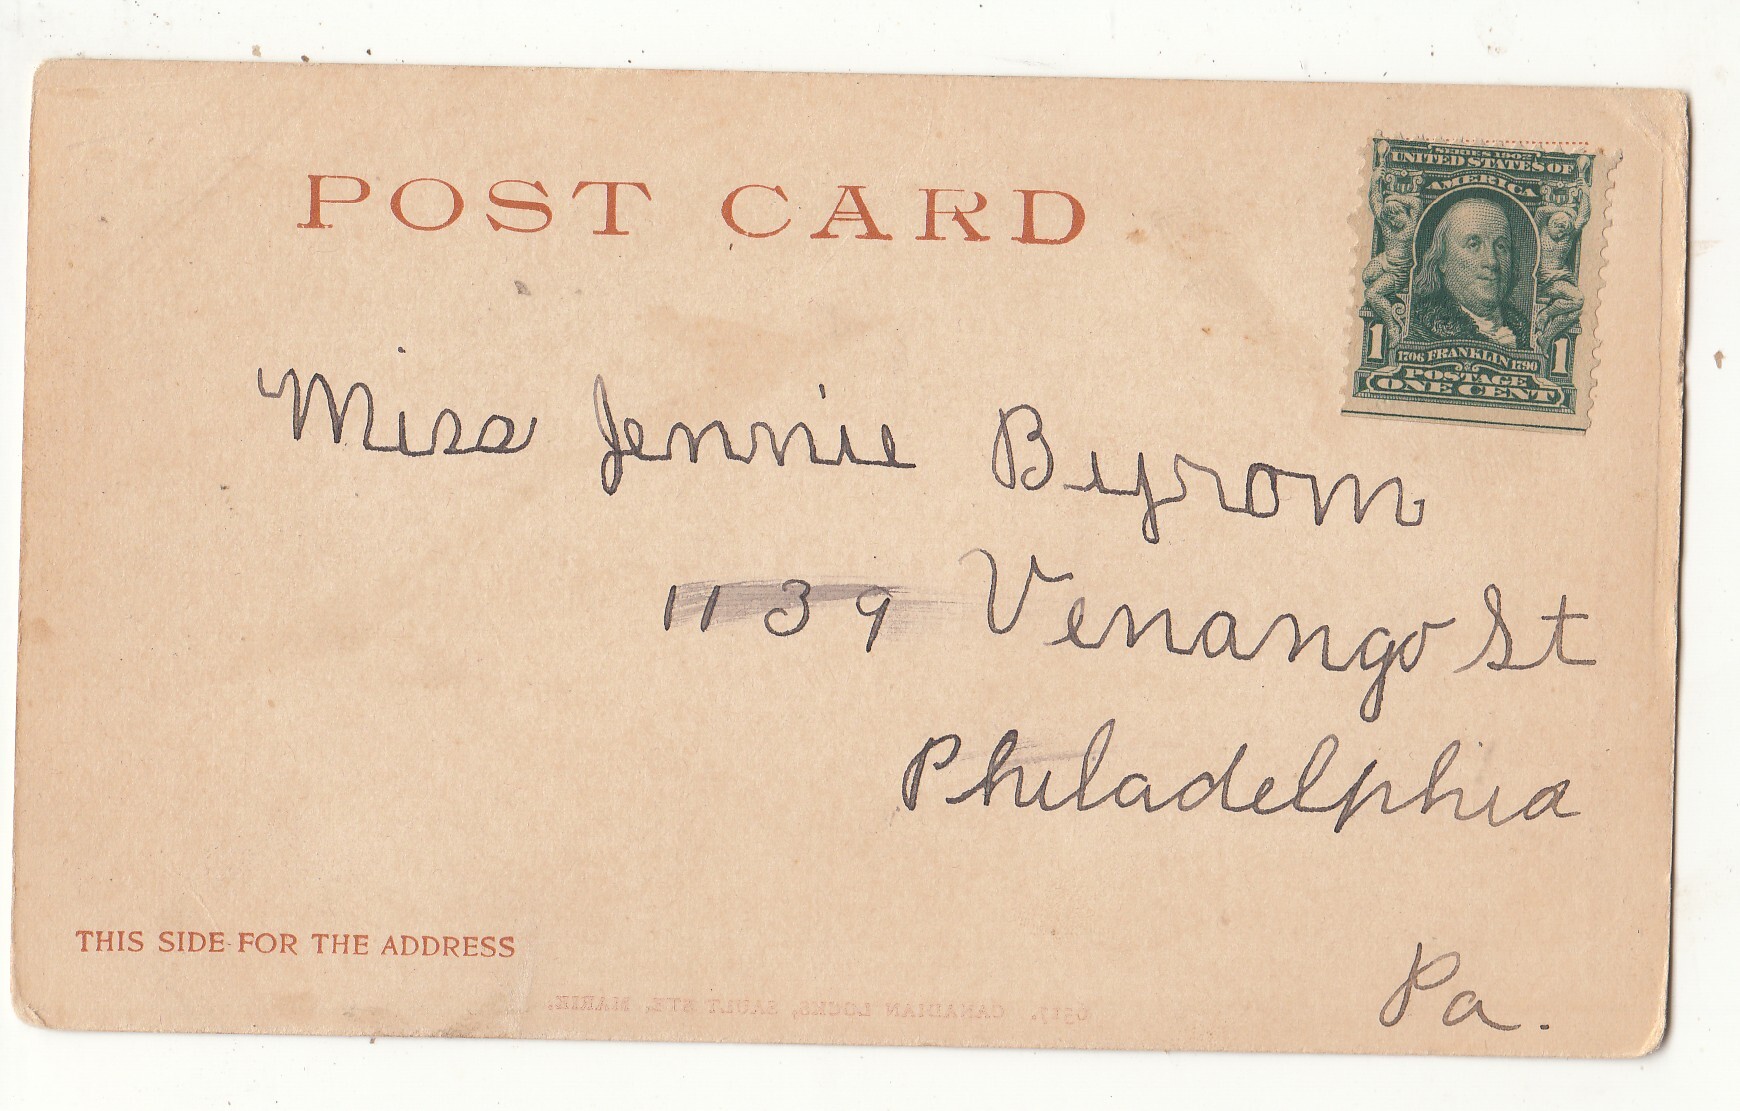 POST CARD
SERIES 1902
UNITED STATES OF
AMERICA
1 1
1706 FRANKLIN 1790
POSTAGE
ONE CENT
Miss Jennie Byrom
1139 Venango St
Philadelphia
Pa.
THIS SIDE FOR THE ADDRESS
6517. CANADIAN LOCKS, SAULT STE, MARIE.